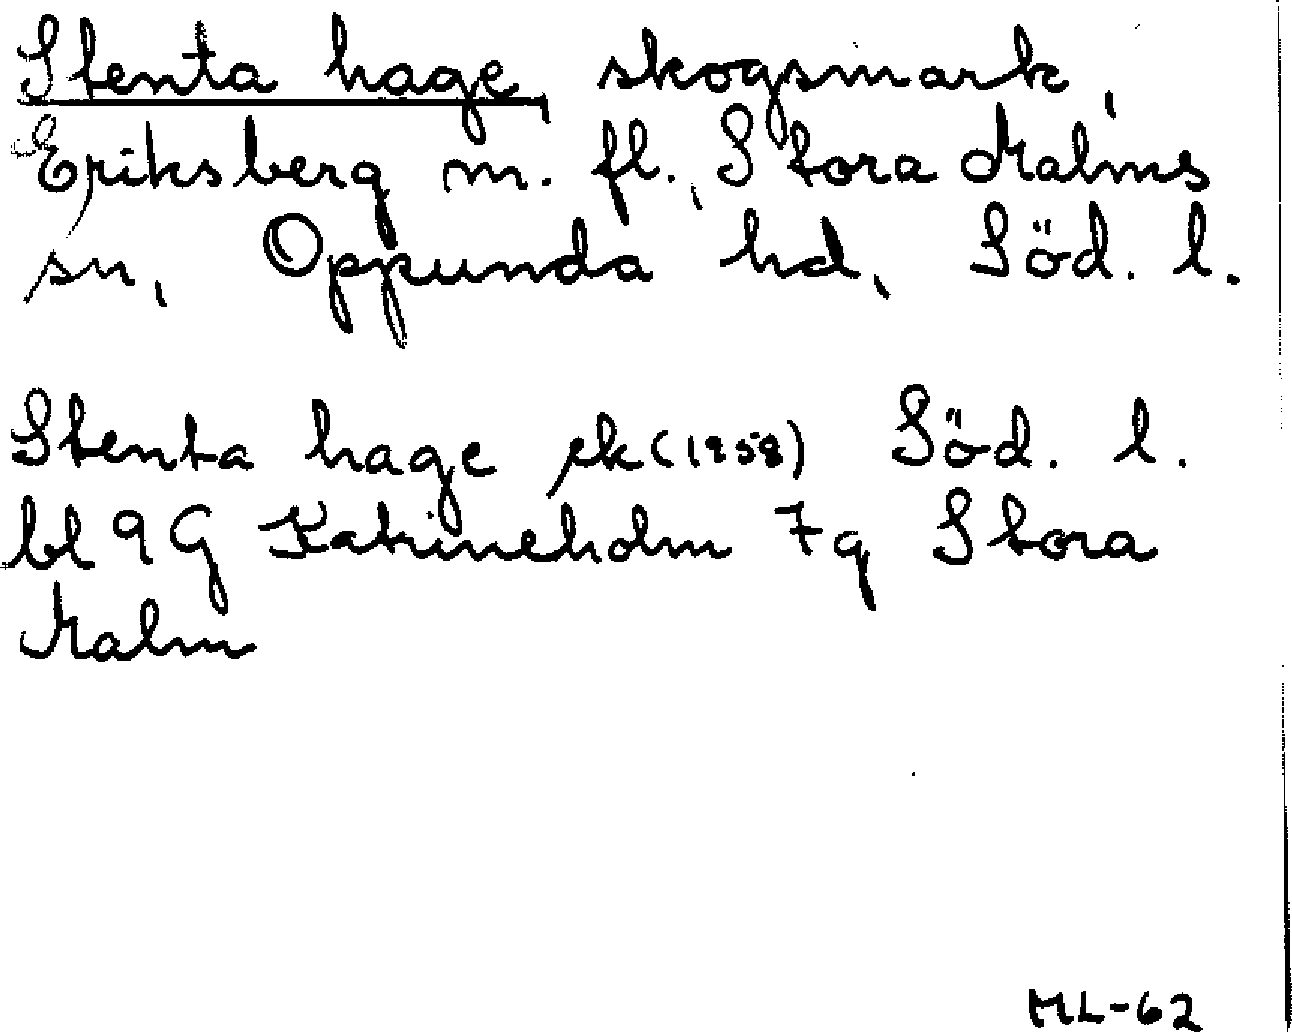 Stenta hage, skogsmark,
Eriksberg m. fl., Stora Malms
sn, Oppunda hd, Söd. l.
Stenta hage ek (1958) Söd. l.
bl 9 G Katrineholm 7g Stora
Malm
ML-62